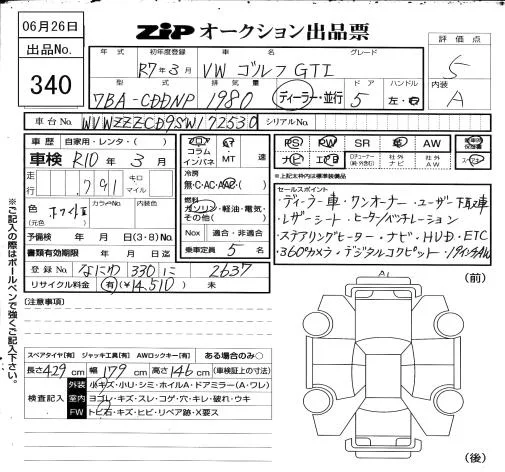 06月26日
ZIP オークション出品票
出品No.
340
評価点
5
内装
A
年式 初年度登録 車名 グレード
R7年3月 VW ゴルフ GTI
型式 排気量 ドア ハンドル
7BA-CDDNP 1980 ディーラー・並行 5 左・右
車台No. WVWZZZCD9SW172530 シリアルNo.
車歴 自家用・レンタ・( )
車検 R10年 3月
走行 791 キロ マイル
色 (元色) ホワイト カラーNo. 内装色
予備検 年 月 日(3・8)No.
書類有効期限 年 月 日迄
登録No. なにわ 330 に 2637
リサイクル料金 有(¥14,510) 未
フロア コラム インパネ MT 速
冷房
無・C・AC・AAC・( )
燃料
ガソリン・軽油・電気・その他( )
Nox 適合・非適合
乗車定員 5 名
PS PW SR 革 AW
ナビ エアB 社外ナビ 社外AW
※上記太枠内は標準装備品
セールスポイント
・ディーラー車・ワンオーナー・ユーザー下取車
・レザーシート・ヒーター/ベンチレーション
・ステアリングヒーター・ナビ・HUD・ETC
・360°カメラ・デジタルコクピット・19インチAW
※ご記入の際はボールペンで強くご記入下さい。
(注意事項)
スペアタイヤ[有] ジャッキ工具[有] AWロックキー[有] ある場合のみ○
長さ429cm 幅179cm 高さ146cm (車検証上の寸法)
検査記入
外装 小キズ・小U・シミ・ホイルA・ドアミラー(A・ワレ)
室内 ヨゴレ・キズ・スレ・コゲ・穴・キレ・破れ・ウキ
FW トビ石・キズ・ヒビ・リペア跡・X要ス
A1
(前)
(後)